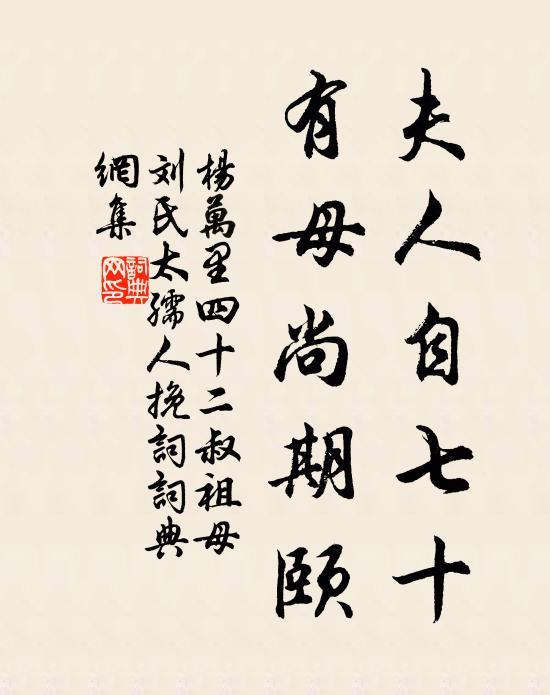 夫人自七十
有母尚期頤
楊萬里四十二叔祖母
刘氏太孺人挽詞詞典
網集
詞典網印